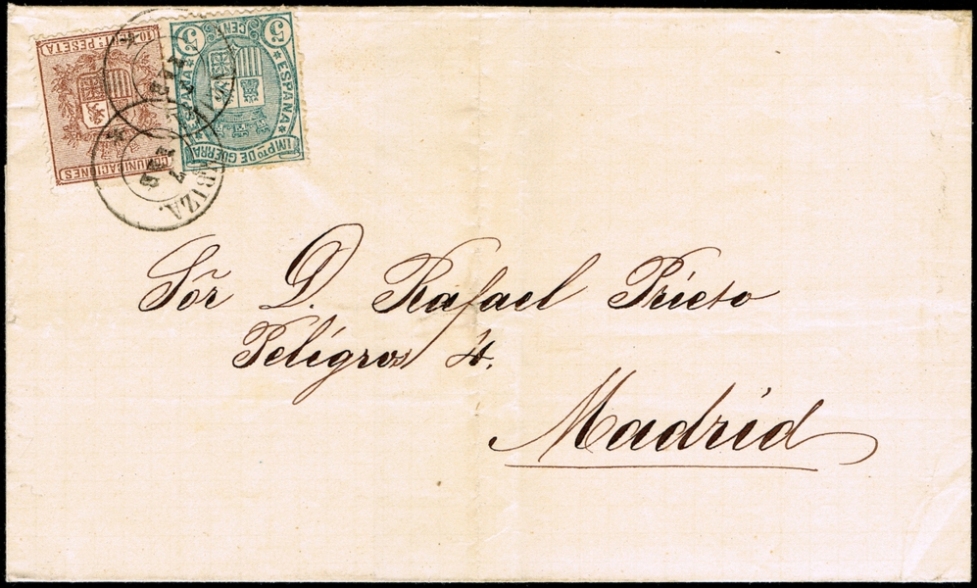 10 CS PESETA
COMUNICACIONES
5 CENT 5
ESPAÑA
ESPAÑA
IMPTO DE GUERRA
IBIZA.
Sōr D. Rafael Prieto
Peligros 4.
Madrid